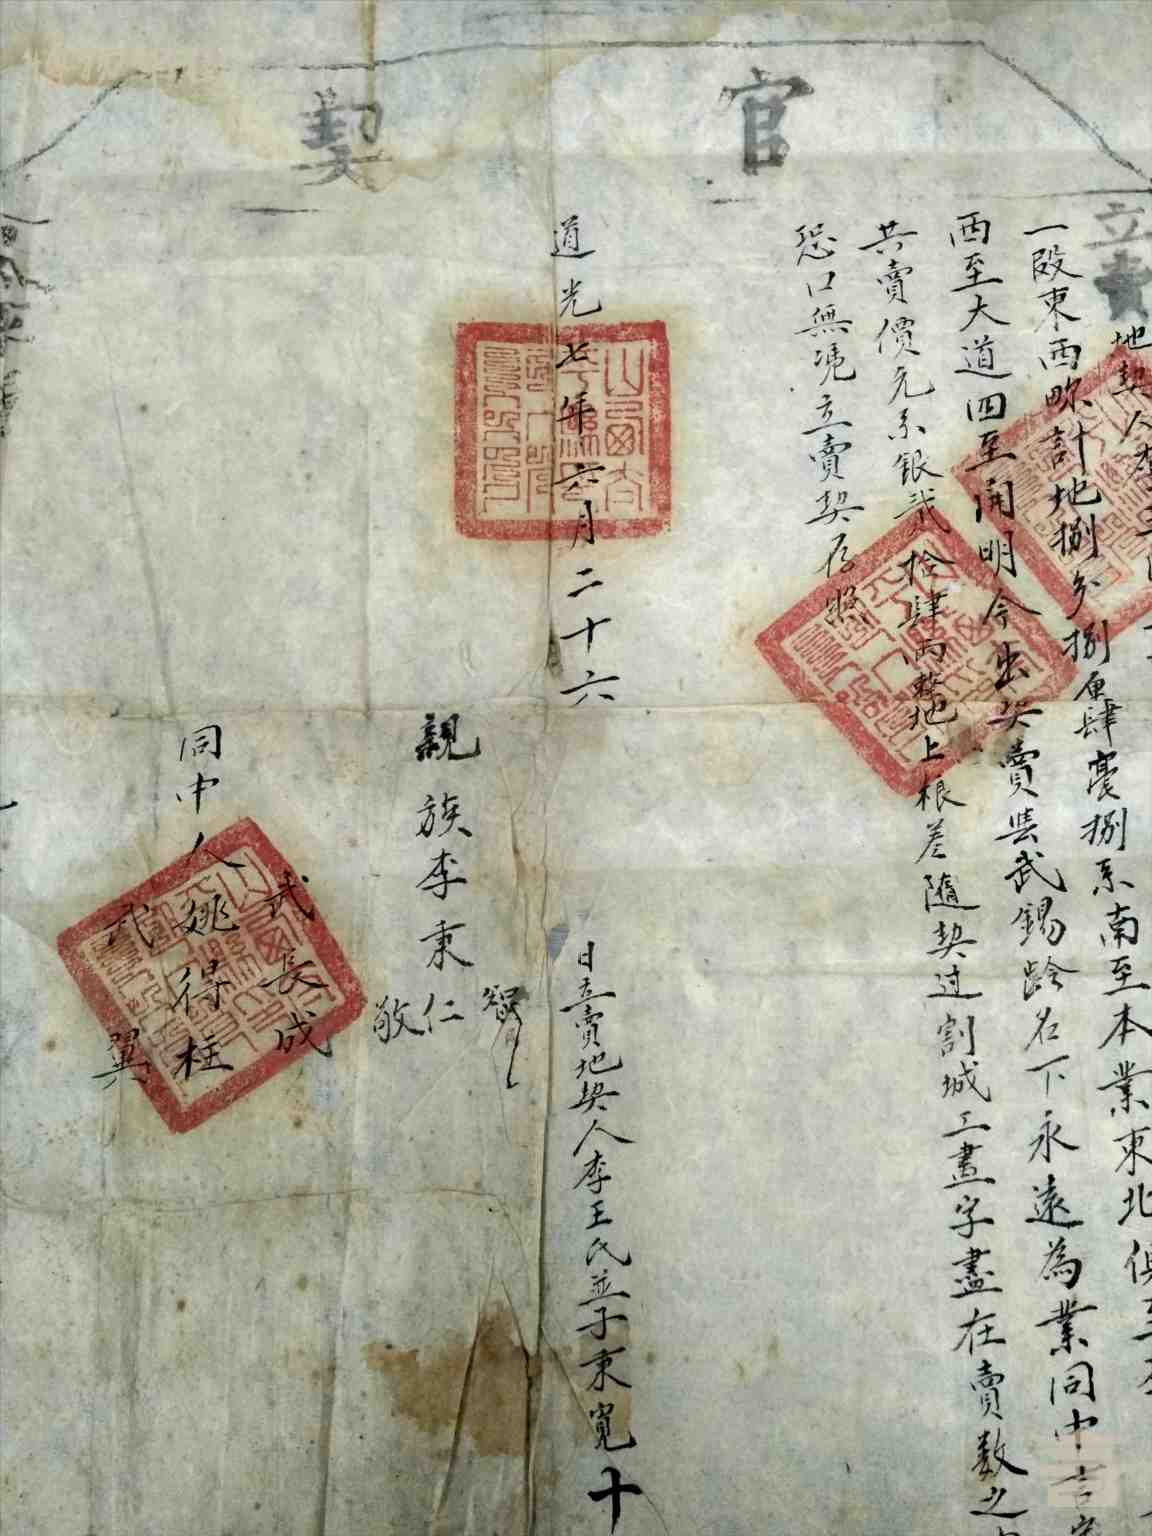 官契
立賣地契人李王
一段東西畛計地捌分捌厘肆毫捌系南至本業東北俱至
西至大道四至開明今出契賣與武錫齡名下永遠為業同中言
共賣價元系銀貳拾肆両整地上根差隨契过割城工畫字盡在賣数之
恐口無凴立賣契存照
道光七年六月二十六
日立賣地契人李王氏並子秉寬十
親族李秉
智
仁
敬
武長成
同中人姚得柱
武翼